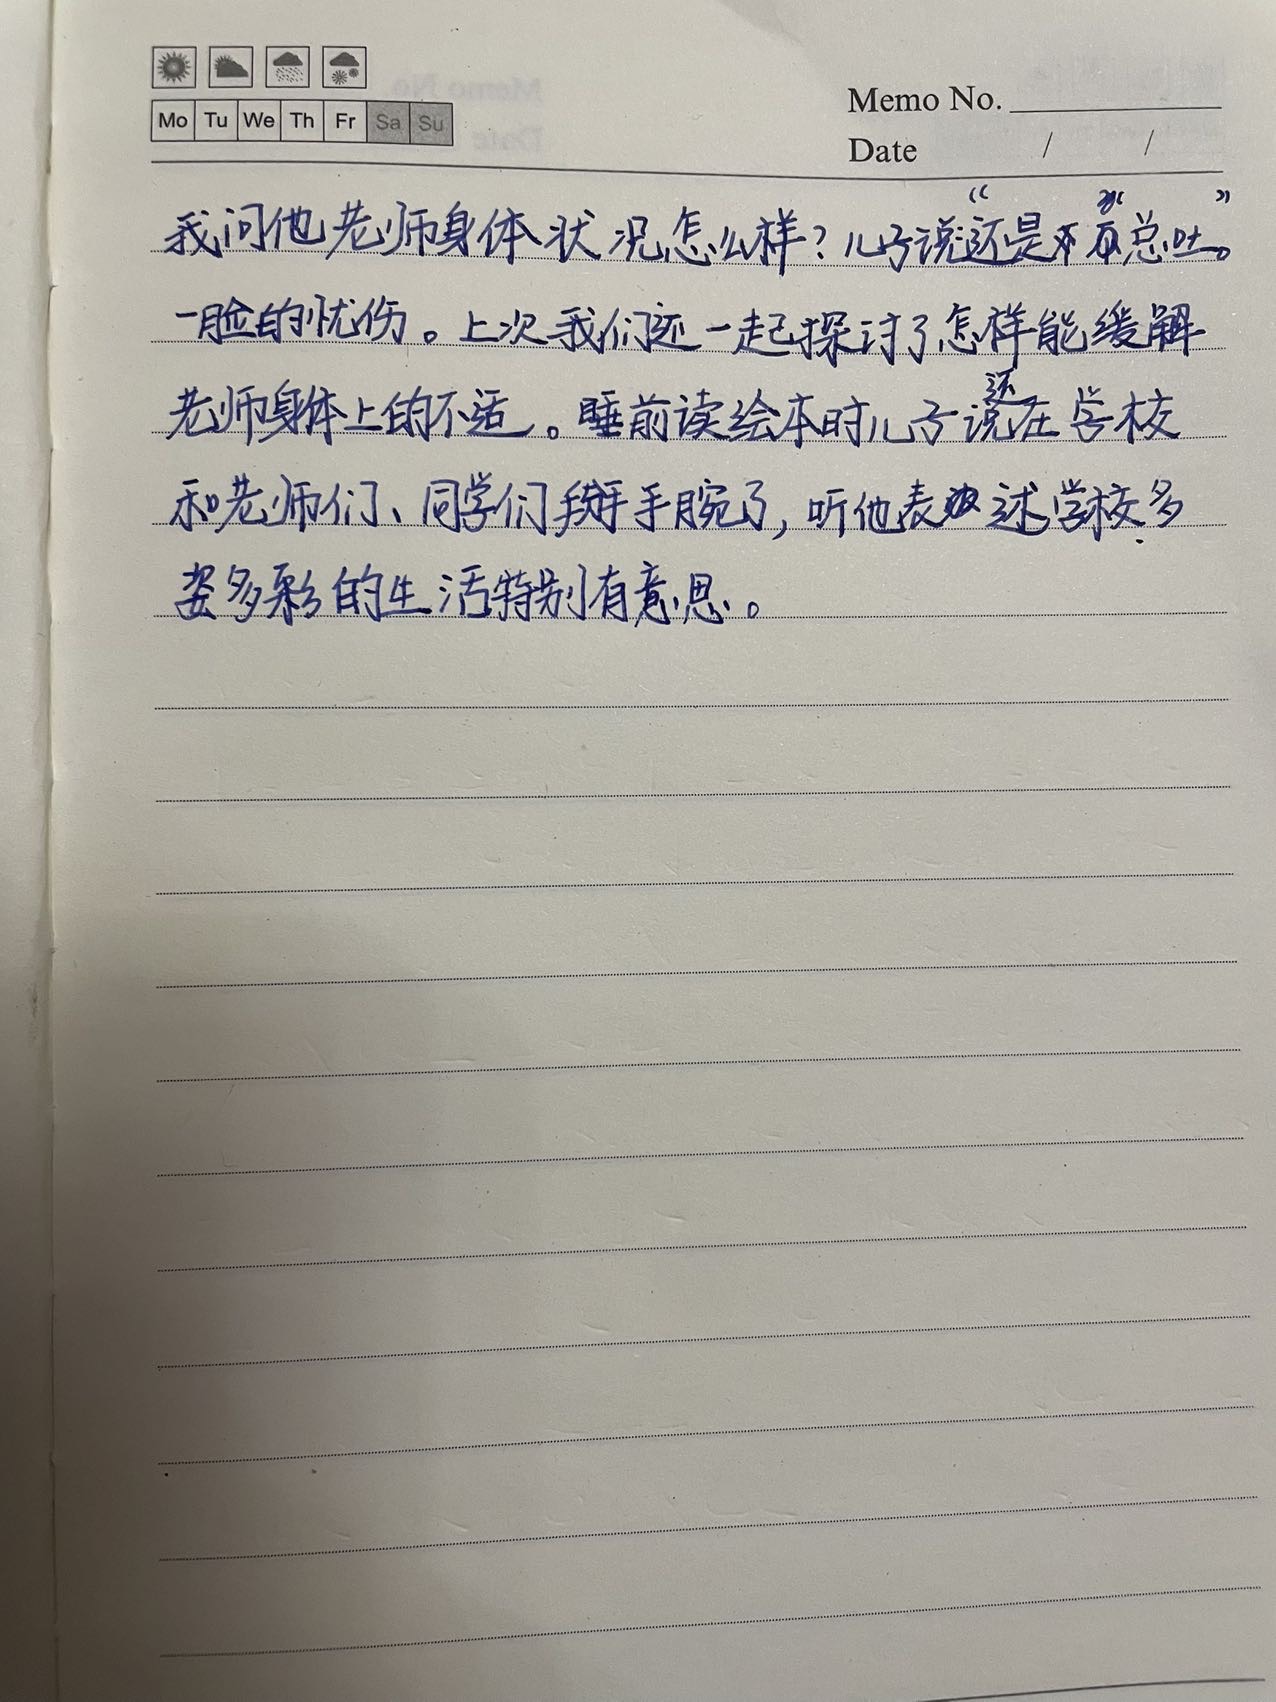 Mo Tu We Th Fr Sa Su
Memo No.
Date / /
我问他老师身体状况怎么样?儿子说“还是总吐”。
一脸的忧伤。上次我们还一起探讨了怎样能缓解
老师身体上的不适。睡前读绘本时儿子还说在学校
和老师们、同学们掰手腕了,听他表述学校多
姿多彩的生活特别有意思。